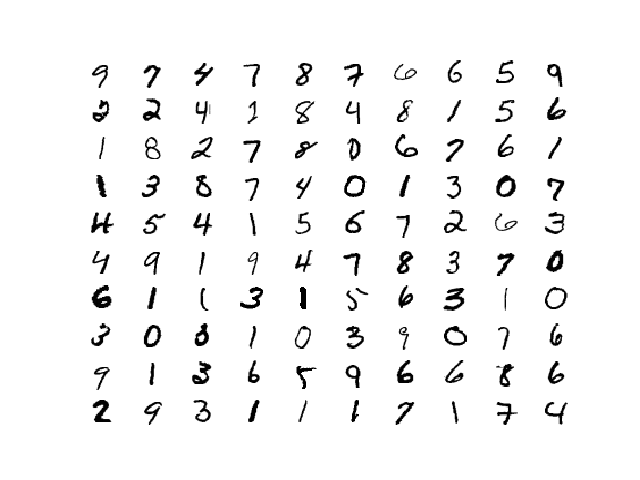 9 7 4 7 8 7 6 6 5 9
2 2 4 1 8 4 8 1 5 6
1 8 2 7 8 0 6 7 6 1
1 3 8 7 4 0 1 3 0 7
4 5 4 1 5 6 7 2 6 3
4 9 1 9 4 7 8 3 7 0
6 1 1 3 1 5 6 3 1 0
3 0 8 1 0 3 9 0 7 6
9 1 3 6 5 9 6 6 8 6
2 9 3 1 1 1 7 1 7 4